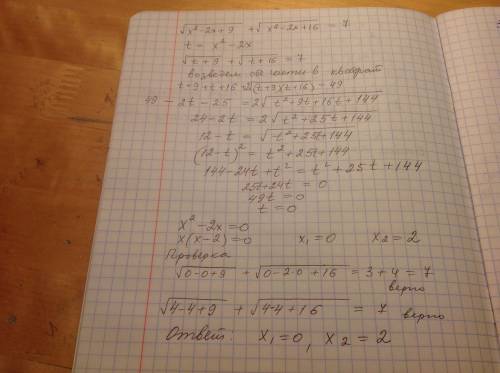 √(x²-2x+9) + √(x²-2x+16) = 7
t = x²-2x
√(t+9) + √(t+16) = 7
возведем обе части в квадрат
t+9+t+16+2√(t+9)(t+16) = 49
49-2t-25 = 2√(t²+9t+16t+144)
24-2t = 2√(t²+25t+144)
12-t = √(t²+25t+144)
(12-t)² = t²+25t+144
144-24t+t² = t²+25t+144
25t+24t = 0
49t = 0
t = 0
x²-2x=0
x(x-2)=0 x₁=0 x₂=2
Проверка
√(0-0+9) + √(0-2·0+16) = 3+4=7
верно
√(4-4+9) + √(4-4+16) = 7 верно
Ответ: x₁=0, x₂=2